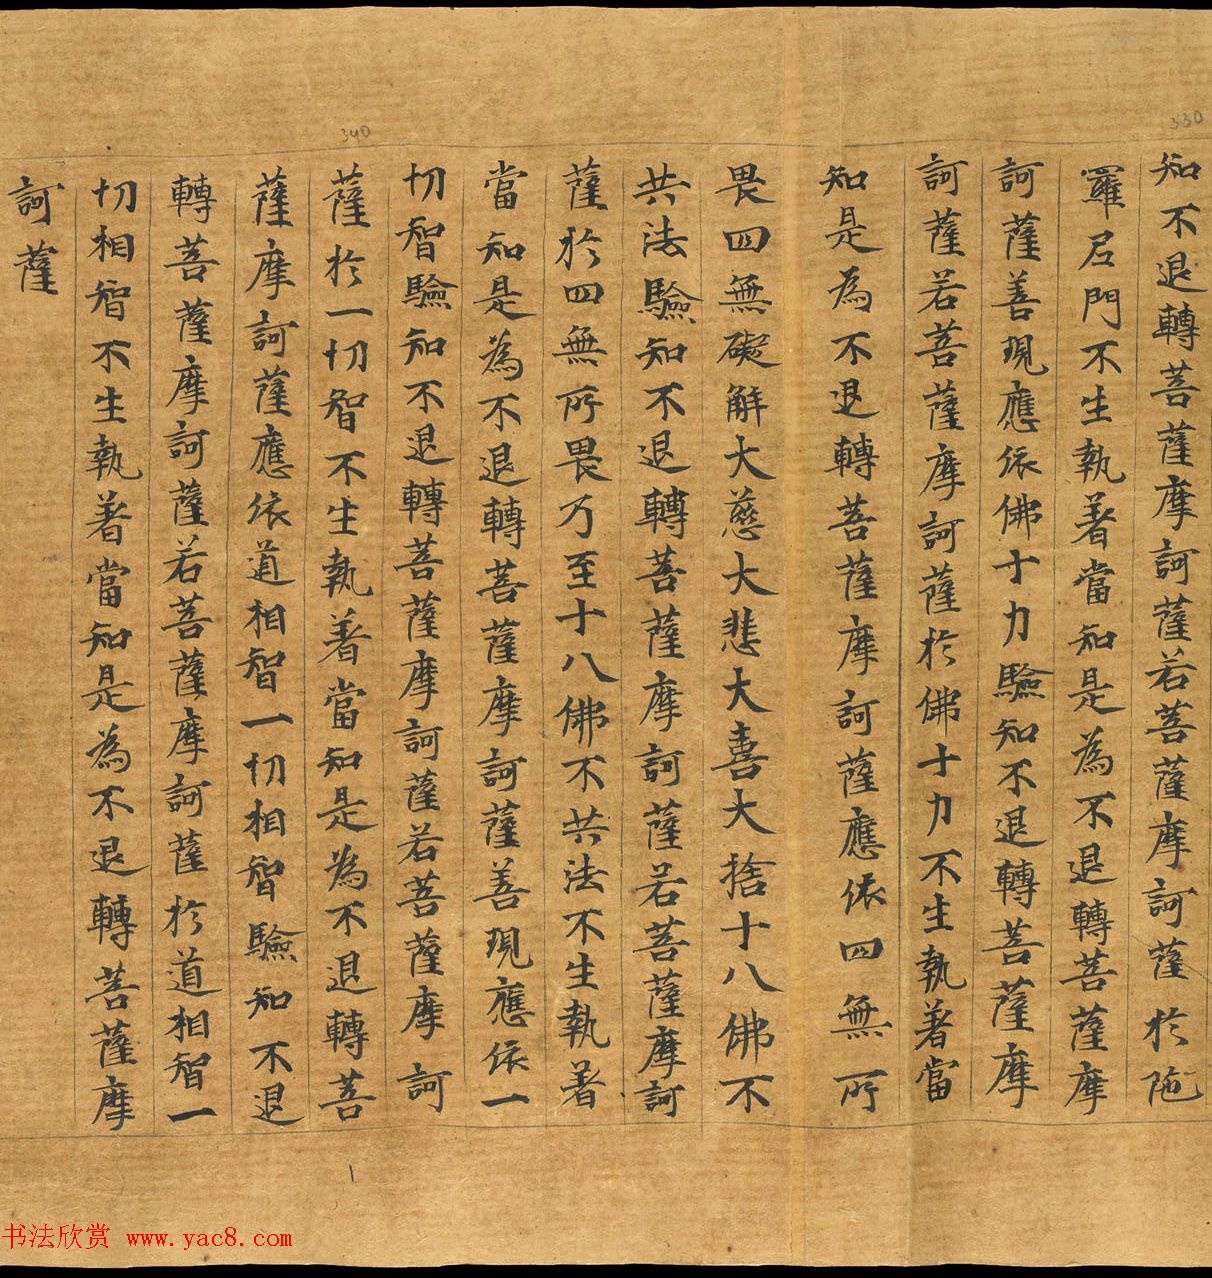 330
知不退轉菩薩摩訶薩若菩薩摩訶薩於陁
羅尼門不生執著當知是為不退轉菩薩摩
訶薩善現應依佛十力驗知不退轉菩薩摩
訶薩若菩薩摩訶薩於佛十力不生執著當
知是為不退轉菩薩摩訶薩應依四無所
畏四無礙解大慈大悲大喜大捨十八佛不
共法驗知不退轉菩薩摩訶薩若菩薩摩訶
薩於四無所畏乃至十八佛不共法不生執著
當知是為不退轉菩薩摩訶薩善現應依一
切智驗知不退轉菩薩摩訶薩若菩薩摩訶
340
薩於一切智不生執著當知是為不退轉菩
薩摩訶薩應依道相智一切相智驗知不退
轉菩薩摩訶薩若菩薩摩訶薩於道相智一
切相智不生執著當知是為不退轉菩薩摩
訶薩
书法欣赏 www.yac8.com